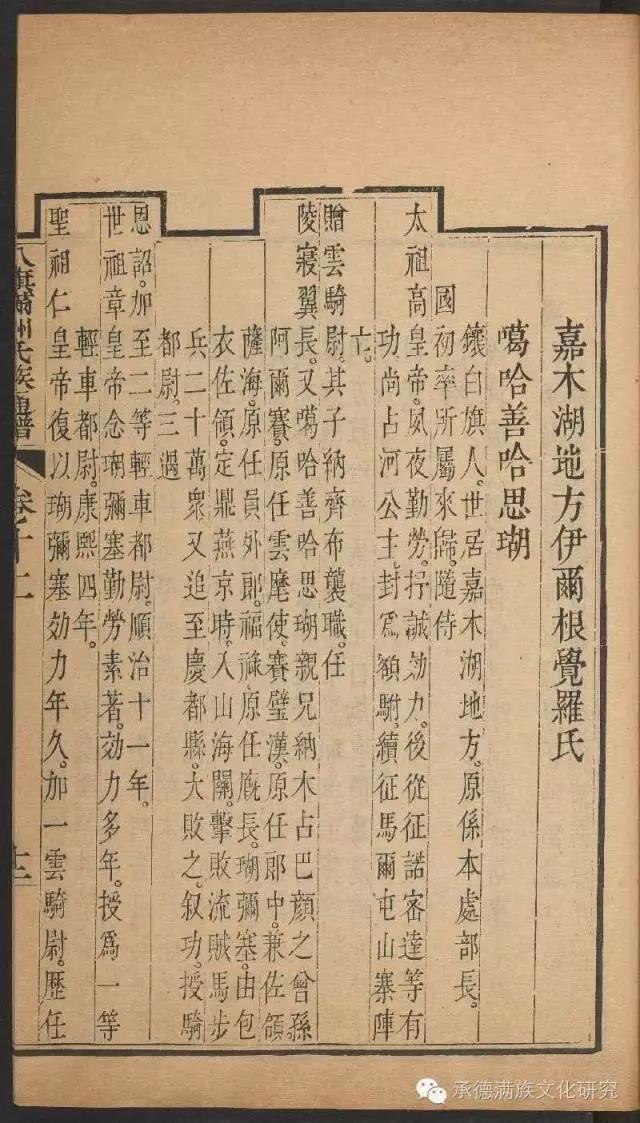 嘉木湖地方伊爾根覺羅氏
噶哈善哈思瑚
鑲白旗人。世居嘉木湖地方。原係本處部長。
國初率所屬來歸。隨侍
太祖高皇帝。夙夜勤勞。抒誠効力。後從征諾密達等有
功。尚占河公主。封為額駙。續征馬爾屯山寨陣
亡。
贈雲騎尉。其子納齊布襲職。任
陵寢翼長。又噶哈善哈思瑚親兄納木占巴顏之曾孫
阿爾賽。原任雲麾使。賽璧漢。原任郎中。兼佐領。
薩海。原任員外郎。福祿。原任廐長。瑚彌塞。由包
衣佐領。定鼎燕京時。入山海關。擊敗流賊馬步
兵二十萬衆。又追至慶都縣。大敗之。叙功。授騎
都尉。三遇
恩詔。加至二等輕車都尉。順治十一年。
世祖章皇帝念瑚彌塞勤勞素著。効力多年。授為一等
輕車都尉。康熙四年。
聖祖仁皇帝復以瑚彌塞効力年久。加一雲騎尉。歷任
八旗滿洲氏族通譜 卷十二 十二
承德满族文化研究